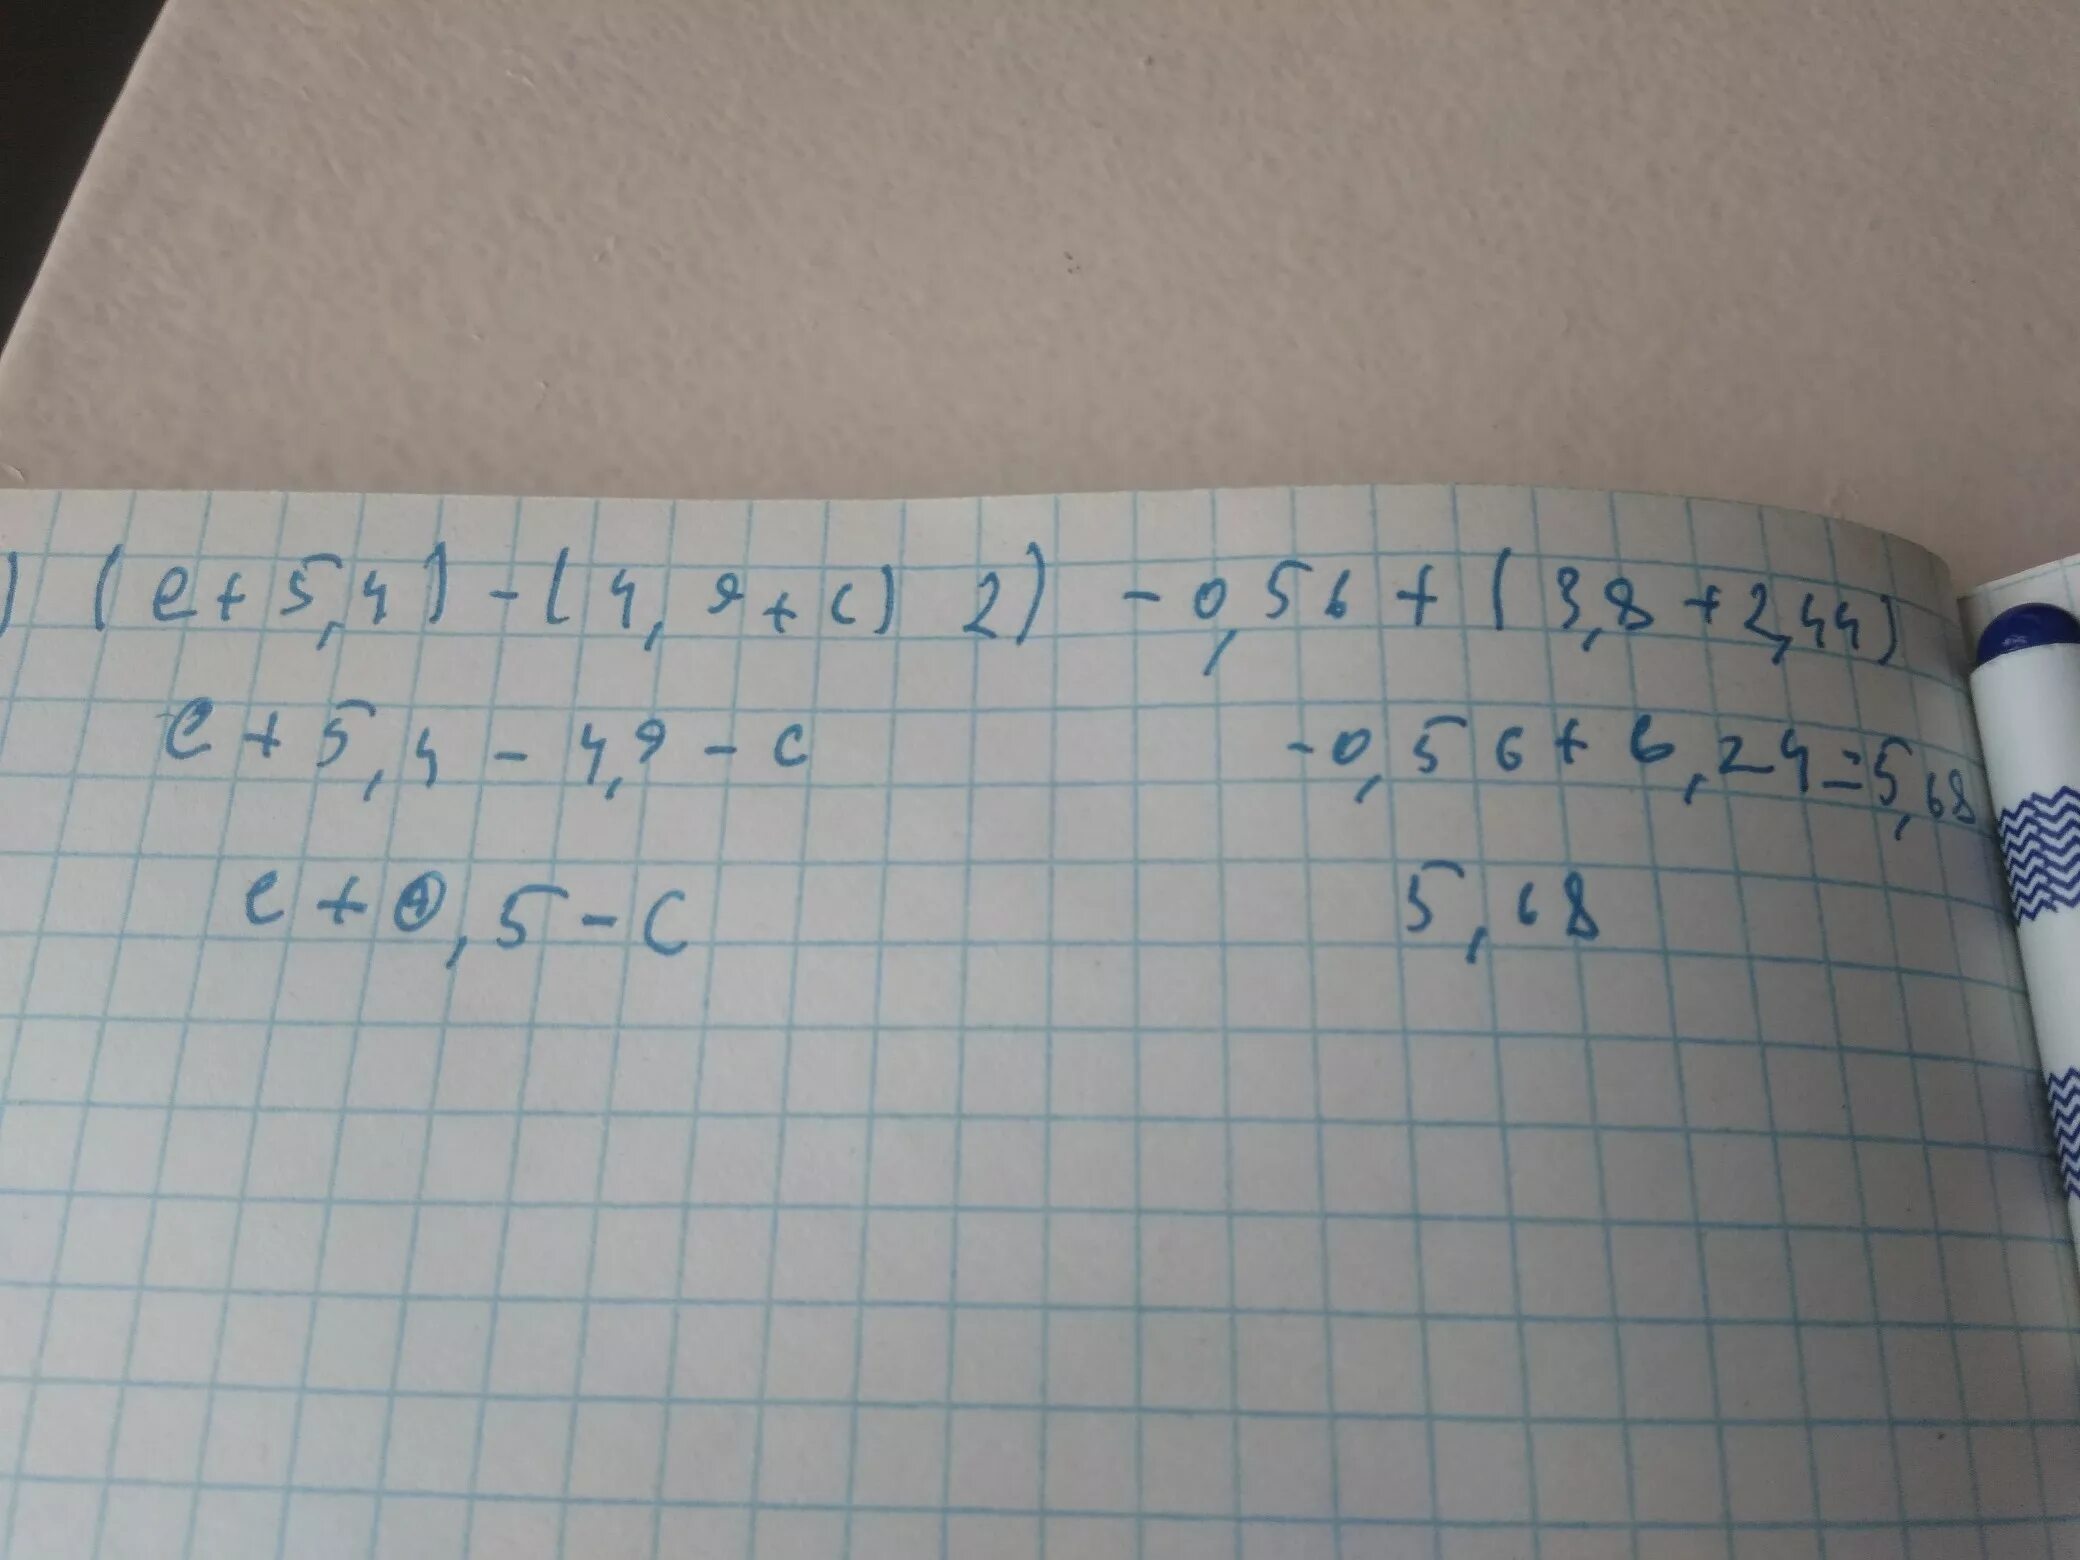 ) (e+5,4)-(4,9+c) 2) -0,56+(3,8+2,44)
e+5,4-4,9-c -0,56+6,24=5,68
e+0,5-c 5,68